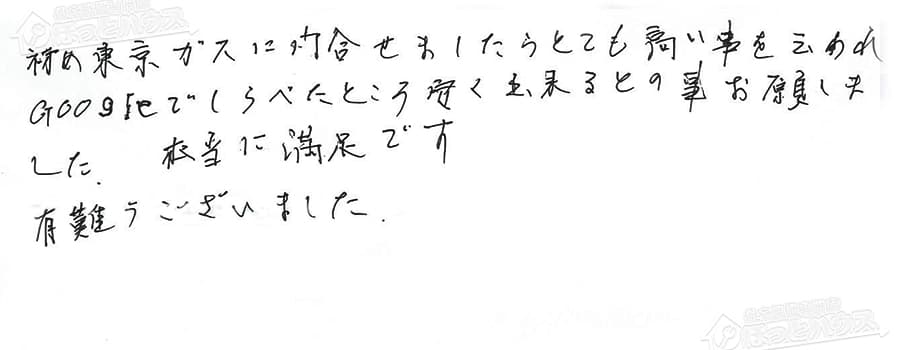 初め東京ガスに問合せましたらとても高い事を云われ
Googleでしらべたところ安く出来るとの事お願しま
した. 本当に満足です
有難うございました.